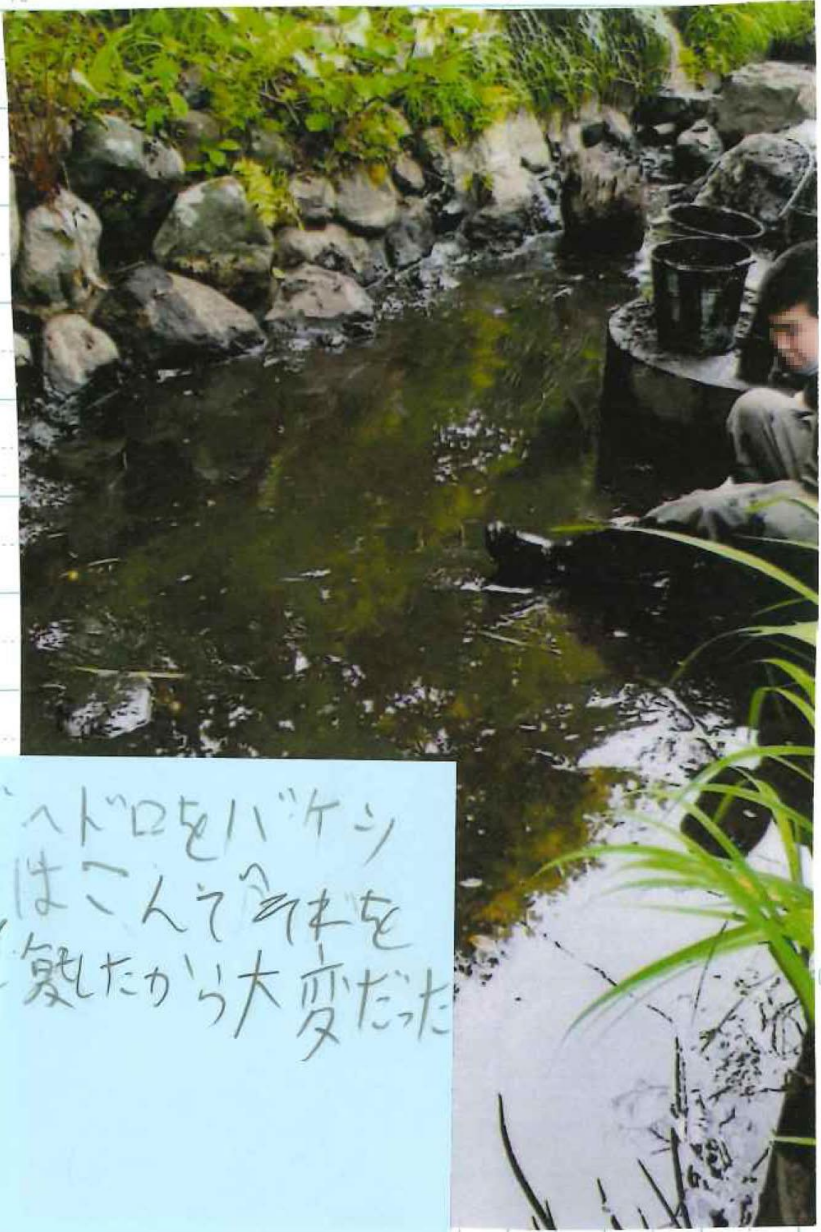 ヘドロをバケツ
はこんでそれを
復したから大変だった